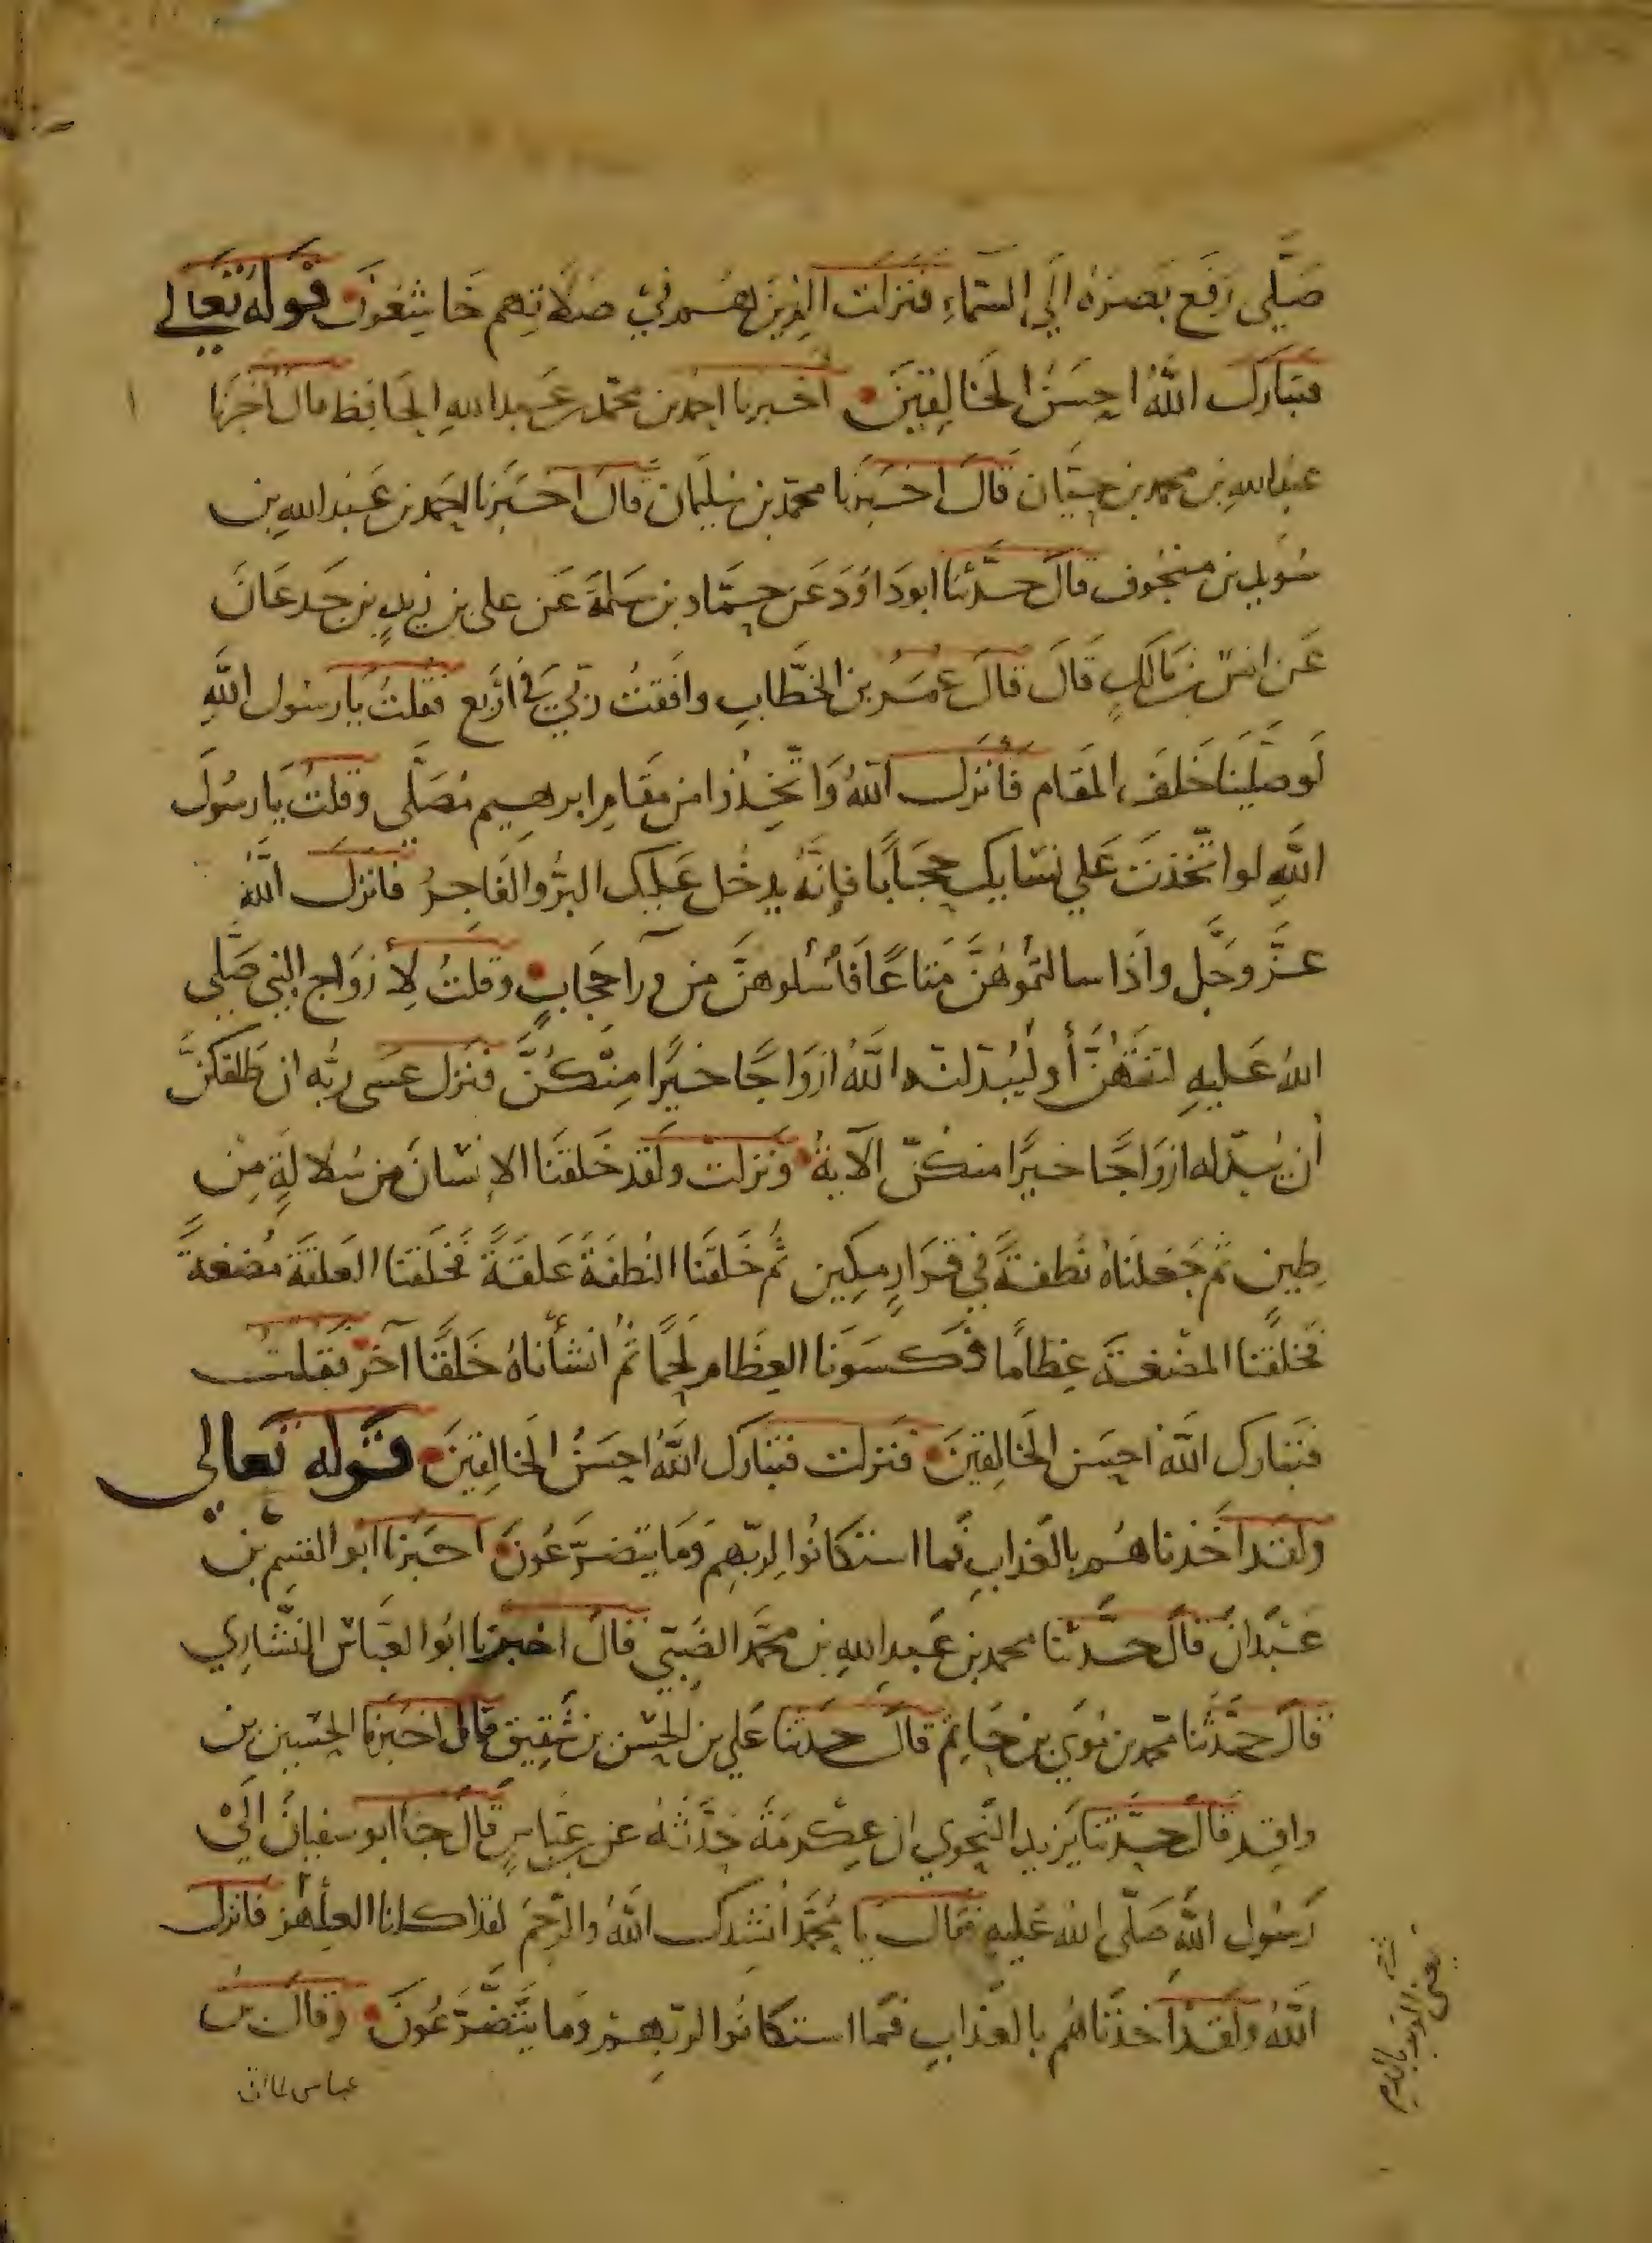 صَلَّى رَفَع بَصَرَهُ اِلَى السَّمَاءِ فَنَزلَت الذِينَ هُم فِي صَلَاتِهِم خَاشِعُونَ قَولهُ تَعَالى
فتبَارَكَ اللَّهُ احسَنُ الخَالِقينَ اخبرنا احمد بن محمد بن عَبد الله الحَافِظ قال اخبَرَنا
عَبدُ اللهِ بن محمد بن حيَّان قَالَ اخبَرَنا محمّد بن سُليمَان قَالَ اخبَرَنا احمَد بن عَبد الله بن
سُوَيدِ بن منجُوف قالَ حدَّثنَا ابو دَاوُدَ عَن حمَّاد بن سَلمةَ عَن على بن زيدِ بن جَدعَانَ
عَن انسِ بن مَالكٍ قَالَ قالَ عُمَرُ بن الخطَّابِ وافَقتُ ربّي في اَربَع فقلتُ يَا رسُول اللَّهِ
لَو صَلَّينَا خَلفَ المقَام فأنزلَ اللهُ وَاتَّخِذُوا من مَقَامِ ابرهِيم مُصَلَّى وقلتُ يَا رسُولَ
اللَّهِ لو اتّخذتَ عَلي نسَايكَ حجَابًا فإنَّهُ يدخُل عَليكَ البرُّ والفَاجرُ فانزلَ اللهُ
عزَّ وَجَل واذَا سالتمُوهُنَّ متاعًا فَاسْئلوهنَّ من ورآ حجَابٍ وقلتُ لِأزوَاج النبي صَلَّى
اللهُ عَليهِ لتَنتَهُنَّ أو ليُبدّلنه اللَّهُ ازوَاجًا خيرًا مِنكُنَّ فنزل عسَى ربُّه ان طَلقكنَّ
أن يُبدّله ازوَاجًا خيرًا منكنّ الآيةُ ونزلت ولَقد خَلقنَا الإنسَانَ من سُلالةٍ مِنْ
طِين ثم جَعلنَاهُ نُطفةً في قرَارٍ مكِين ثُم خَلقنَا النُطفَةَ عَلقَةً فخلَقنَا العَلقَةَ مُضغةً
فخلقنَا المضغةَ عِظامًا فكسَونَا العِظام لَحمًا ثُم انشأناهُ خَلقًا آخر فقلت
فتبَارك اللهُ احسَن الخَالِقينَ فنزلت فتبَارك اللَّهُ احسَنُ الخَالِقينَ قوله تعالى
ولقد اَخَذنَاهُم بالعَذابِ فمَا استكَانُوا لربّهِم وَمَا يتضَرَّعُونَ اخبَرنا ابو القسِم بن
عَبدَانَ قالَ حدَّثنا محمد بن عَبد اللهِ بن محمَّد الضبّي قالَ اخبرنا ابُو العبَّاس السَّيَّاري
قالَ حدَّثنا محمد بن مُوسى بن حَاتِم قالَ حدَّثنا عَلي بن الحسَن بن شَقِيق قالَ اخبَرنا الحسَين بن
واقِد قالَ حدَّثنا يَزيد النَّحوي ان عِكرمَة حدَّثهُ عن بن عبَّاسٍ قالَ جا ابو سفيَان الَى
رَسُول اللَّهِ صَلّى اللهُ عَليهِ فقالَ يا مُحَمَّدُ انشدكَ اللَّهَ والرَّحِمَ لقد اكلنا العِلهز فانزلَ
اللَّهُ ولَقد اَخَذنَاهُم بالعَذابِ فمَا استكَانُوا لربّهِم ومَا يتَضَرَّعُونَ وقالَ بن
عباس لما اتى
يعنى الوبر بالدم